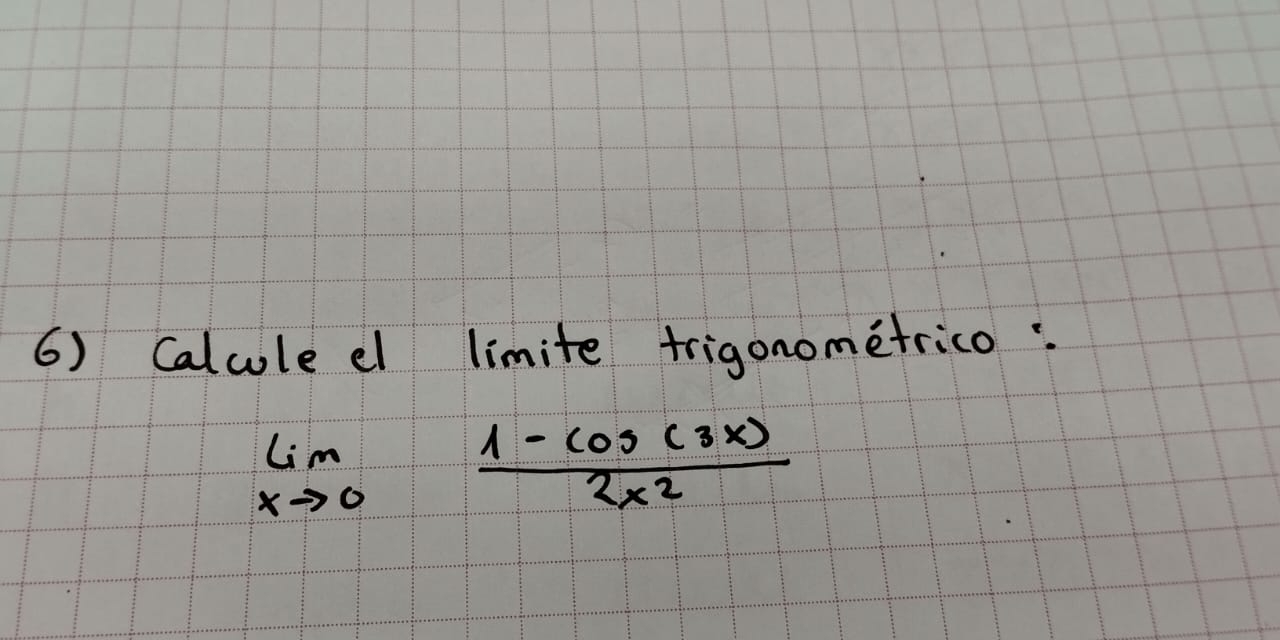 6) Calcule el límite trigonométrico :
lim 1 - cos (3x)
x→0 2x2